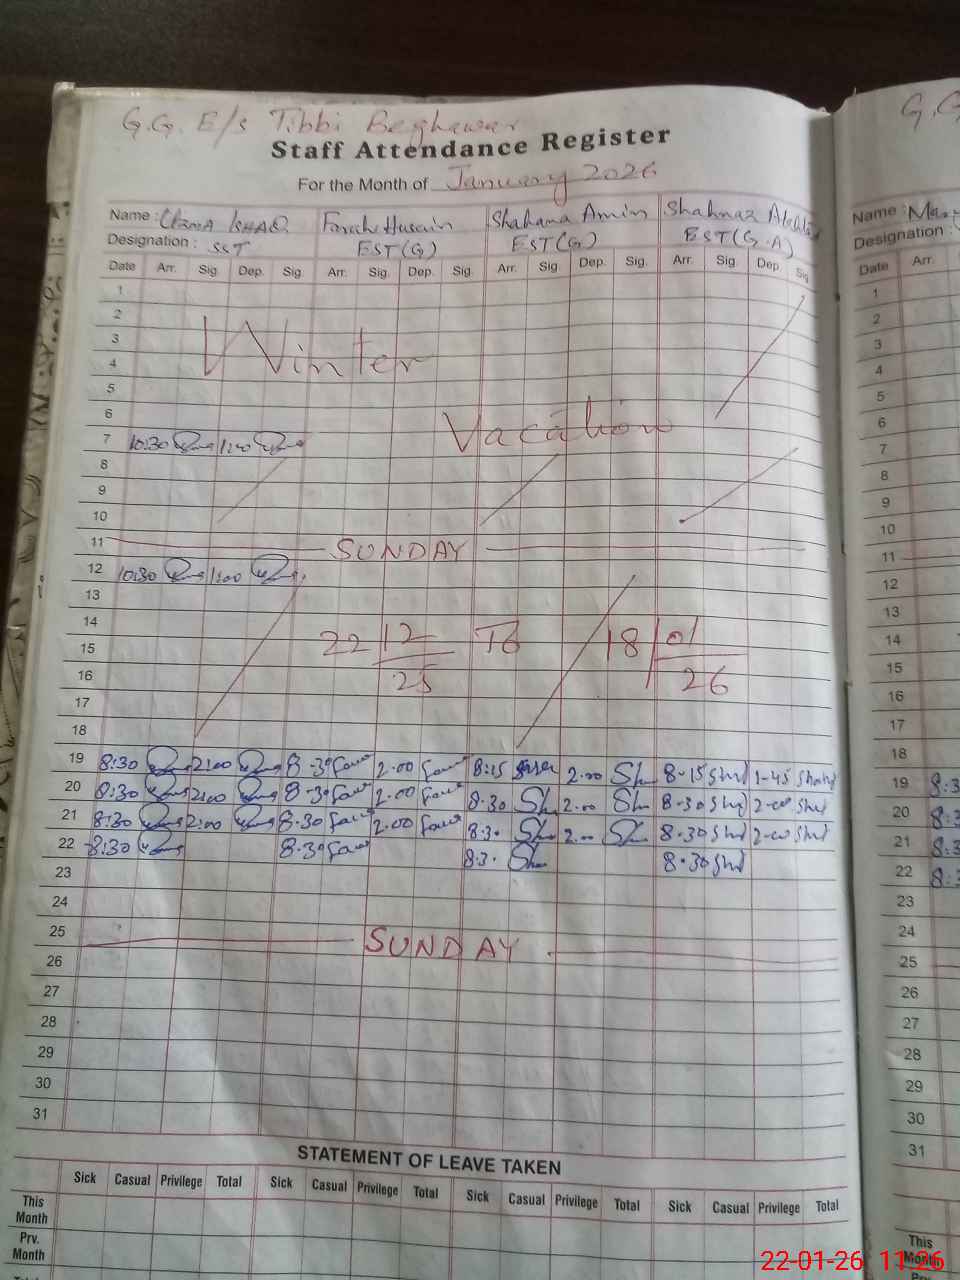 G.G. E/s Tibbi Beghawar
Staff Attendance Register
For the Month of January 2026
Name : UZMA ISHAQ Farah Hussain Shahana Amin Shahnaz Akhtar
Designation : SST EST(G) EST(G) EST(G.A)
Date Arr. Sig. Dep. Sig. Arr. Sig. Dep. Sig. Arr. Sig. Dep. Sig. Arr. Sig. Dep. Sig.
1
2
3 Winter
4
5
6 Vacation
7 10:30 1:00
8
9
10
11 SUNDAY
12 10:30 1:00
13
14
15 22/12/25 To 18/01/26
16
17
18
19 8:30 2:00 8-30 2.00 8:15 2.00 8-15 1-45
20 8:30 2:00 8-30 2.00 8.30 Sh 2.00 Sh 8-30 2-00
21 8:30 2:00 8.30 2.00 8.30 Sh 2.00 Sh 8.30 2-00
22 8:30 8.30 8.30 Sh 8.30
23
24
25 SUNDAY
26
27
28
29
30
31
STATEMENT OF LEAVE TAKEN
Sick Casual Privilege Total Sick Casual Privilege Total Sick Casual Privilege Total Sick Casual Privilege Total
This Month
Prv. Month
G.G
Name :
Designation :
Date Arr.
1
2
3
4
5
6
7
8
9
10
11
12
13
14
15
16
17
18
19
20
21
22
23
24
25
26
27
28
29
30
31
This
Month
22-01-26 11:26